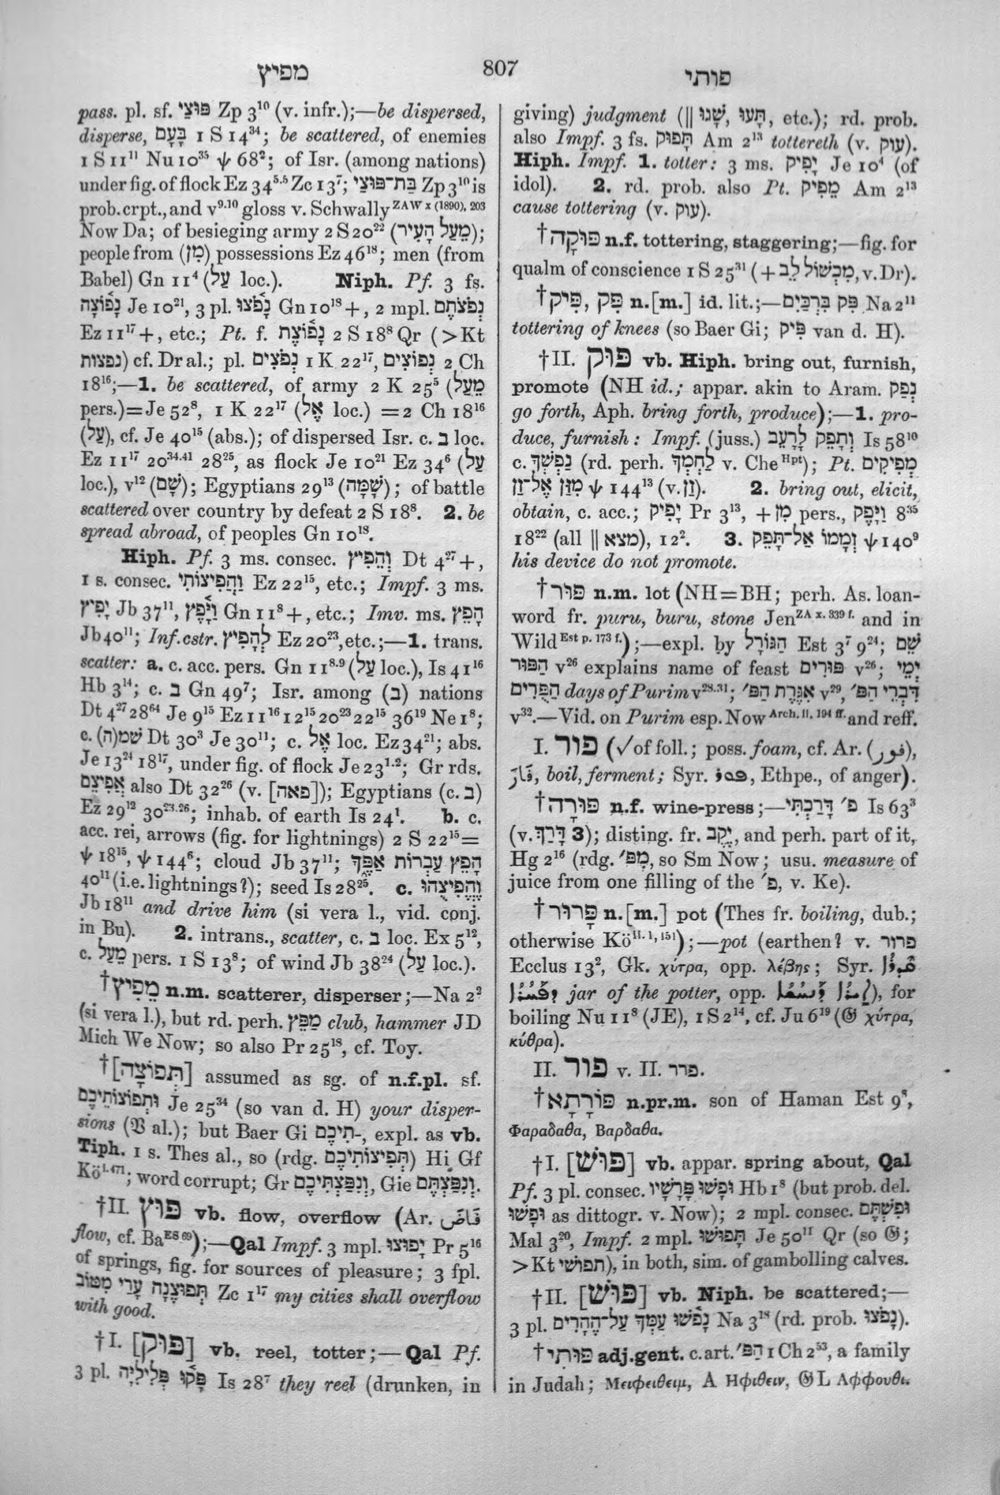 מפיץ
807
פותי
pass. pl. sf. פּוּצַי Zp 3¹⁰ (v. infr.);—be dispersed,
disperse, בָּעָם 1 S 14³⁴; be scattered, of enemies
1 S 11¹¹ Nu 10³⁵ ψ 68²; of Isr. (among nations)
under fig. of flock Ez 34⁵·⁵ Zc 13⁷; בַּת־פּוּצַי Zp 3¹⁰ is
prob. crpt., and v⁹·¹⁰ gloss v. Schwally ZAW x (1890), 203
Now Da; of besieging army 2 S 20²² (מֵעַל הָעִיר);
people from (מִן) possessions Ez 46¹⁸; men (from
Babel) Gn 11⁴ (עַל loc.). Niph. Pf. 3 fs.
נָפֹ֫וצָה Je 10²¹, 3 pl. נָפֹ֫צוּ Gn 10¹⁸+, 2 mpl. נְפֹצֹתֶם
Ez 11¹⁷+, etc.; Pt. f. נָפֹ֫וצֶת 2 S 18⁸ Qr (>Kt
נפצות) cf. Dr al.; pl. נְפֹצִים 1 K 22¹⁷, נְפוֹצִים 2 Ch
18¹⁶;—1. be scattered, of army 2 K 25⁵ (מֵעַל
pers.)=Je 52⁸, 1 K 22¹⁷ (אֶל loc.) =2 Ch 18¹⁶
(עַל), cf. Je 40¹⁵ (abs.); of dispersed Isr. c. ב loc.
Ez 11¹⁷ 20³⁴·⁴¹ 28²⁵, as flock Je 10²¹ Ez 34⁶ (עַל
loc.), v¹² (שָׁם); Egyptians 29¹³ (שָׁמָּה); of battle
scattered over country by defeat 2 S 18⁸. 2. be
spread abroad, of peoples Gn 10¹⁸.
Hiph. Pf. 3 ms. consec. וְהֵפִיץ Dt 4²⁷+,
1 s. consec. וַהֲפִיצוֹתִי Ez 22¹⁵, etc.; Impf. 3 ms.
יָפִיץ Jb 37¹¹, וַיָּ֫פֶץ Gn 11⁸+, etc.; Imv. ms. הָפֵץ
Jb 40¹¹; Inf. cstr. לְהָפִיץ Ez 20²³, etc.;—1. trans.
scatter: a. c. acc. pers. Gn 11⁸·⁹ (עַל loc.), Is 41¹⁶
Hb 3¹⁴; c. ב Gn 49⁷; Isr. among (ב) nations
Dt 4²⁷ 28⁶⁴ Je 9¹⁵ Ez 11¹⁶ 12¹⁵ 20²³ 22¹⁵ 36¹⁹ Ne 1⁸;
c. שׁם(ה) Dt 30³ Je 30¹¹; c. אֶל loc. Ez 34²¹; abs.
Je 13²⁴ 18¹⁷, under fig. of flock Je 23¹·²; Gr rds.
אֲפִיצֵם also Dt 32²⁶ (v. [פאה]); Egyptians (c. ב)
Ez 29¹² 30²³·²⁶; inhab. of earth Is 24¹. b. c.
acc. rei, arrows (fig. for lightnings) 2 S 22¹⁵=
ψ 18¹⁵, ψ 144⁶; cloud Jb 37¹¹; הָפֵץ עֶבְרוֹת אַפֶּךָ
40¹¹ (i.e. lightnings?); seed Is 28²⁵. c. וֶהֱפִיצֻהוּ
Jb 18¹¹ and drive him (si vera l., vid. conj.
in Bu). 2. intrans., scatter, c. ב loc. Ex 5¹²,
c. מֵעַל pers. 1 S 13⁸; of wind Jb 38²⁴ (עַל loc.).
†מֵפִיץ n.m. scatterer, disperser;—Na 2²
(si vera l.), but rd. perh. מַפֵּץ club, hammer JD
Mich We Now; so also Pr 25¹⁸, cf. Toy.
†[תְּפוֹצָה] assumed as sg. of n.f.pl. sf.
וּתְפוֹצוֹתֵיכֶם Je 25³⁴ (so van d. H) your disper-
sions (𝔙 al.); but Baer Gi תִיכֶם-, expl. as vb.
Tiph. 1 s. Thes al., so (rdg. תְּפִיצוֹתִיכֶם) Hi Gf
Kö I. 471; word corrupt; Gr וְנִפַּצְתִּיכֶם, Gie וְנִפַּצְתֶּם.
†II. פוץ vb. flow, overflow (Ar. فَاضَ
flow, cf. Ba ES 69);—Qal Impf. 3 mpl. יָפוּצוּ Pr 5¹⁶
of springs, fig. for sources of pleasure; 3 fpl.
תְּפוּצֶנָה עָרַי מִטּוֹב Zc 1¹⁷ my cities shall overflow
with good.
†I. [פּוּק] vb. reel, totter;—Qal Pf.
3 pl. פָּקוּ פְּלִילִיָּה Is 28⁷ they reel (drunken, in
giving) judgment (|| שָׁגוּ, תָּעוּ, etc.); rd. prob.
also Impf. 3 fs. תָּפוּק Am 2¹³ tottereth (v. עוק).
Hiph. Impf. 1. totter: 3 ms. יָפִיק Je 10⁴ (of
idol). 2. rd. prob. also Pt. מֵפִיק Am 2¹³
cause tottering (v. עוק).
†פּוּקָה n.f. tottering, staggering;—fig. for
qualm of conscience 1 S 25³¹ (+מִכְשׁוֹל לֵב, v. Dr).
†פִּק, פִּיק n.[m.] id. lit.;—פִּק בִּרְכַּיִם Na 2¹¹
tottering of knees (so Baer Gi; פִּיק van d. H).
†II. פּוּק vb. Hiph. bring out, furnish,
promote (NH id.; appar. akin to Aram. נְפַק
go forth, Aph. bring forth, produce);—1. pro-
duce, furnish: Impf. (juss.) וְתָפֵק לָרָעֵב Is 58¹⁰
c. נַפְשֶׁךָ (rd. perh. לַחְמֶךָ v. Che Hpt); Pt. מְפִיקִים
מִזַּן אֶל־זַן ψ 144¹³ (v. זַן). 2. bring out, elicit,
obtain, c. acc.; יָפִיק Pr 3¹³, +מִן pers., וַיָּפֶק 8³⁵
18²² (all || מצא), 12². 3. זְמָמוֹ אַל־תָּפֵק ψ 140⁹
his device do not promote.
†פּוּר n.m. lot (NH=BH; perh. As. loan-
word fr. puru, buru, stone Jen ZA x. 339 f. and in
Wild Est p. 173 f.);—expl. by הַגּוֹרָל Est 3⁷ 9²⁴; שֵׁם
הַפּוּר v²⁶ explains name of feast פּוּרִים v²⁶; יְמֵי
הַפֻּרִים days of Purim v²⁸·³¹; אִגֶּרֶת הַפּ׳ v²⁹, דִּבְרֵי הַפּ׳
v³².—Vid. on Purim esp. Now Arch. II, 194 ff. and reff.
I. פור (√of foll.; poss. foam, cf. Ar. (فور),
فَارَ, boil, ferment; Syr. ܦܘܪ, Ethpe., of anger).
†פּוּרָה n.f. wine-press;—פּ׳ דָּרַכְתִּי Is 63³
(v. דָּרַךְ 3); disting. fr. יֶקֶב, and perh. part of it,
Hg 2¹⁶ (rdg. מִפּ׳, so Sm Now; usu. measure of
juice from one filling of the פּ׳, v. Ke).
†פָּרוּר n.[m.] pot (Thes fr. boiling, dub.;
otherwise Kö II. 1, 151);—pot (earthen? v. פרור
Ecclus 13², Gk. χύτρα, opp. λέβης; Syr.
jar of the potter, opp.), for
boiling Nu 11⁸ (JE), 1 S 2¹⁴, cf. Ju 6¹⁹ (𝔊 χύτρα,
κύθρα).
II. פור v. II. פרר.
†פּוֹרָתָא n.pr.m. son of Haman Est 9⁸,
Φαραδαθα, Βαρδαθα.
†I. [פּוּשׁ] vb. appar. spring about, Qal
Pf. 3 pl. consec. וּפָשׁוּ פָּרָשָׁיו Hb 1⁸ (but prob. del.
וּפָשׁוּ as dittogr. v. Now); 2 mpl. consec. וּפִשְׁתֶּם
Mal 3²⁰, Impf. 2 mpl. תָּפוּשׁוּ Je 50¹¹ Qr (so 𝔊;
>Kt תפושׁי), in both, sim. of gambolling calves.
†II. [פּוּשׁ] vb. Niph. be scattered;—
3 pl. נָפֹ֫שׁוּ עַמְּךָ עַל־הֶהָרִים Na 3¹⁸ (rd. prob. נָפֹצוּ).
†פּוּתִי adj.gent. c. art. הַפּ׳ 1 Ch 2⁵³, a family
in Judah; Μειφειθειμ, A Ηφιθειν, 𝔊L Αφφουθι.